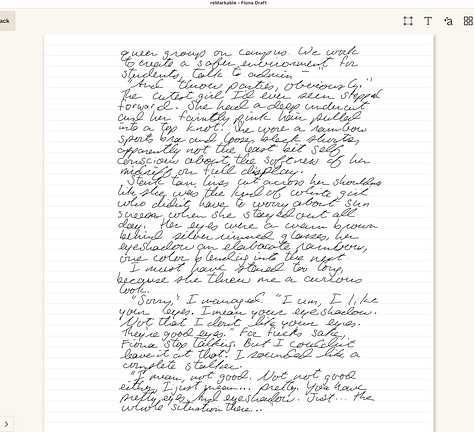 reMarkable - Fiona Draft
ack
queer groups on campus. We work
to create a safer environment for
students, talk to admin —"
"And throw parties, obviously."
The cutest girl I'd ever seen stepped
forward. She had a deep undercut
and her faintly pink hair pulled
into a top knot. She wore a rainbow
sports bra and loose black shorts,
apparently not the least bit self
conscious about the softness of her
midriff on full display.
Stark tan lines cut across her shoulders
like she was the kind of white girl
who didn't have to worry about sun
screen when she stayed out all
day. Her eyes were a warm brown
behind silver rimmed glasses, her
eyeshadow an elaborate rainbow,
one color blending into the next.
I must have stared too long,
because she threw me a curious
look.
"Sorry," I managed. "I um, I like
your eyes. I mean your eyeshadow.
Not that I don't like your eyes.
They're good eyes." For fucks sake,
Fiona stop talking. But I couldn't
leave it at that. I sounded like a
complete stalker.
"I mean, not good. Not not good
either, I just mean... pretty. You have
pretty eyes. And eyeshadow. Just... the
whole situation there...